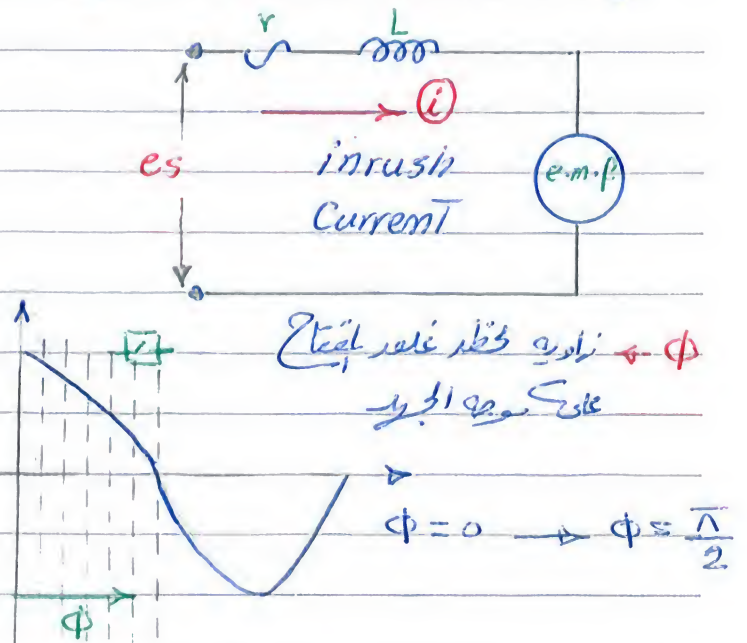 r L
i
es inrush e.m.f.
Current
V
φ ← زاويه لحظه غلق المفتاح
على موجه الجهد
φ = 0 → φ = π/2
φ